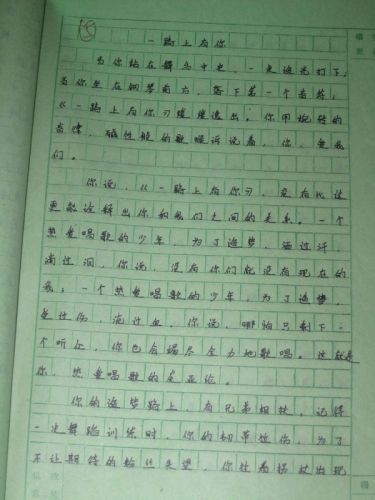 一路上有你
当你站在舞台中央，一束追光打下，
当你坐在钢琴面前，落下第一个音符，
《一路上有你》缓缓逸出。你用婉转的
音律，磁性般的歌喉诉说着，你，是我
们。
你说，《一路上有你》，没有比这
更能诠释出你和我们之间的关系。一个
热爱唱歌的少年，为了追梦，洒过汗，
滴过泪，你说，没有你们就没有现在的
我；一个热爱唱歌的少年，为了追梦，
受过伤，流过血，你说，哪怕只剩下一
个听众，你也会竭尽全力地歌唱。这就是
你，热爱唱歌的
你的追梦路上，有兄弟相扶。记得
一次舞蹈训练时，你的韧带拉伤，为了
不让期待的粉丝失望，你拄着拐杖出现